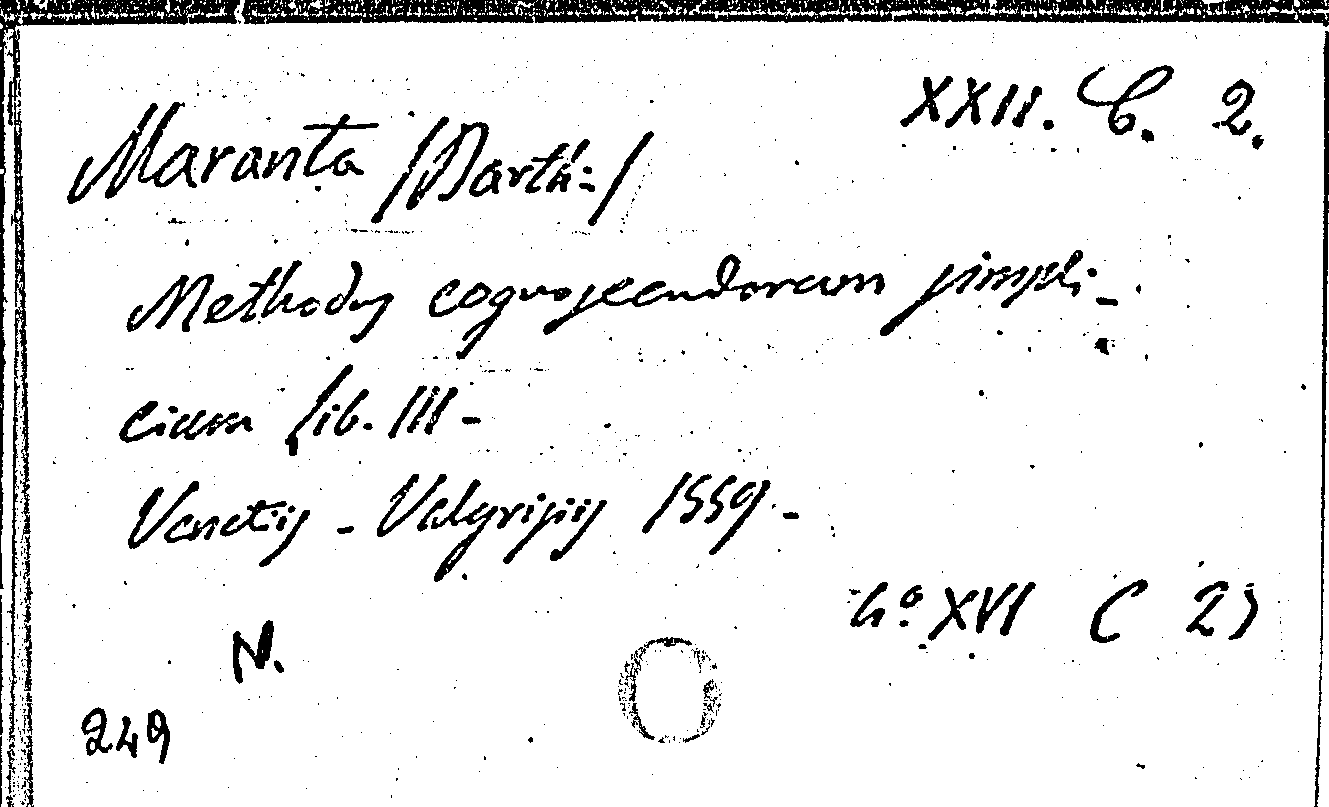 XXII. C. 2.
Maranta /Barth:/
Methodus cognoscendorum simpli-
cium Lib. III -
Venetijs - Valgrisijs 1559 -
4º XVI C 23
N.
249